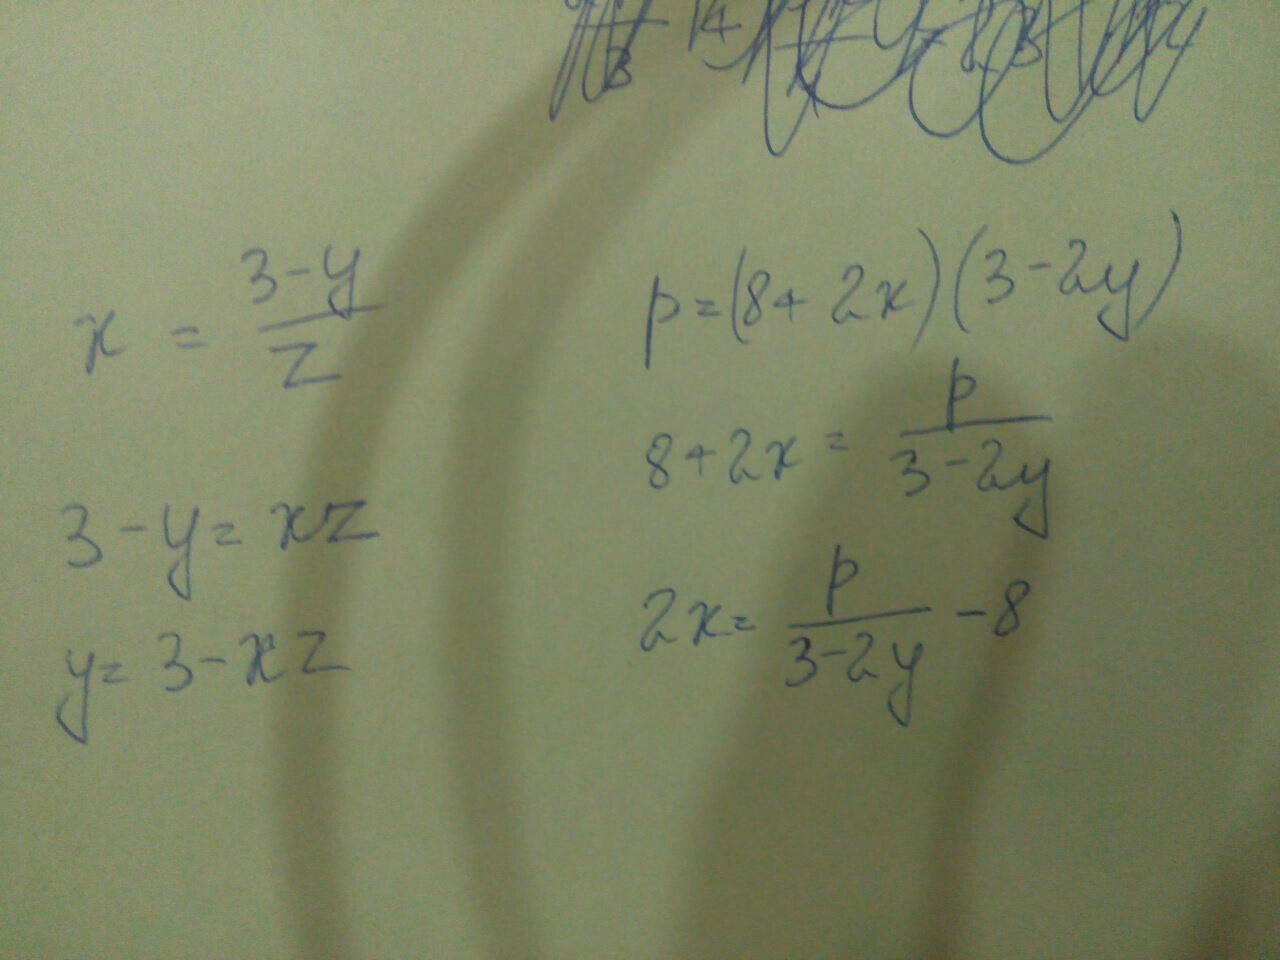 x = (3-y)/z
3-y = xz
y = 3-xz
p = (8+2x)(3-2y)
8+2x = p/(3-2y)
2x = p/(3-2y) - 8